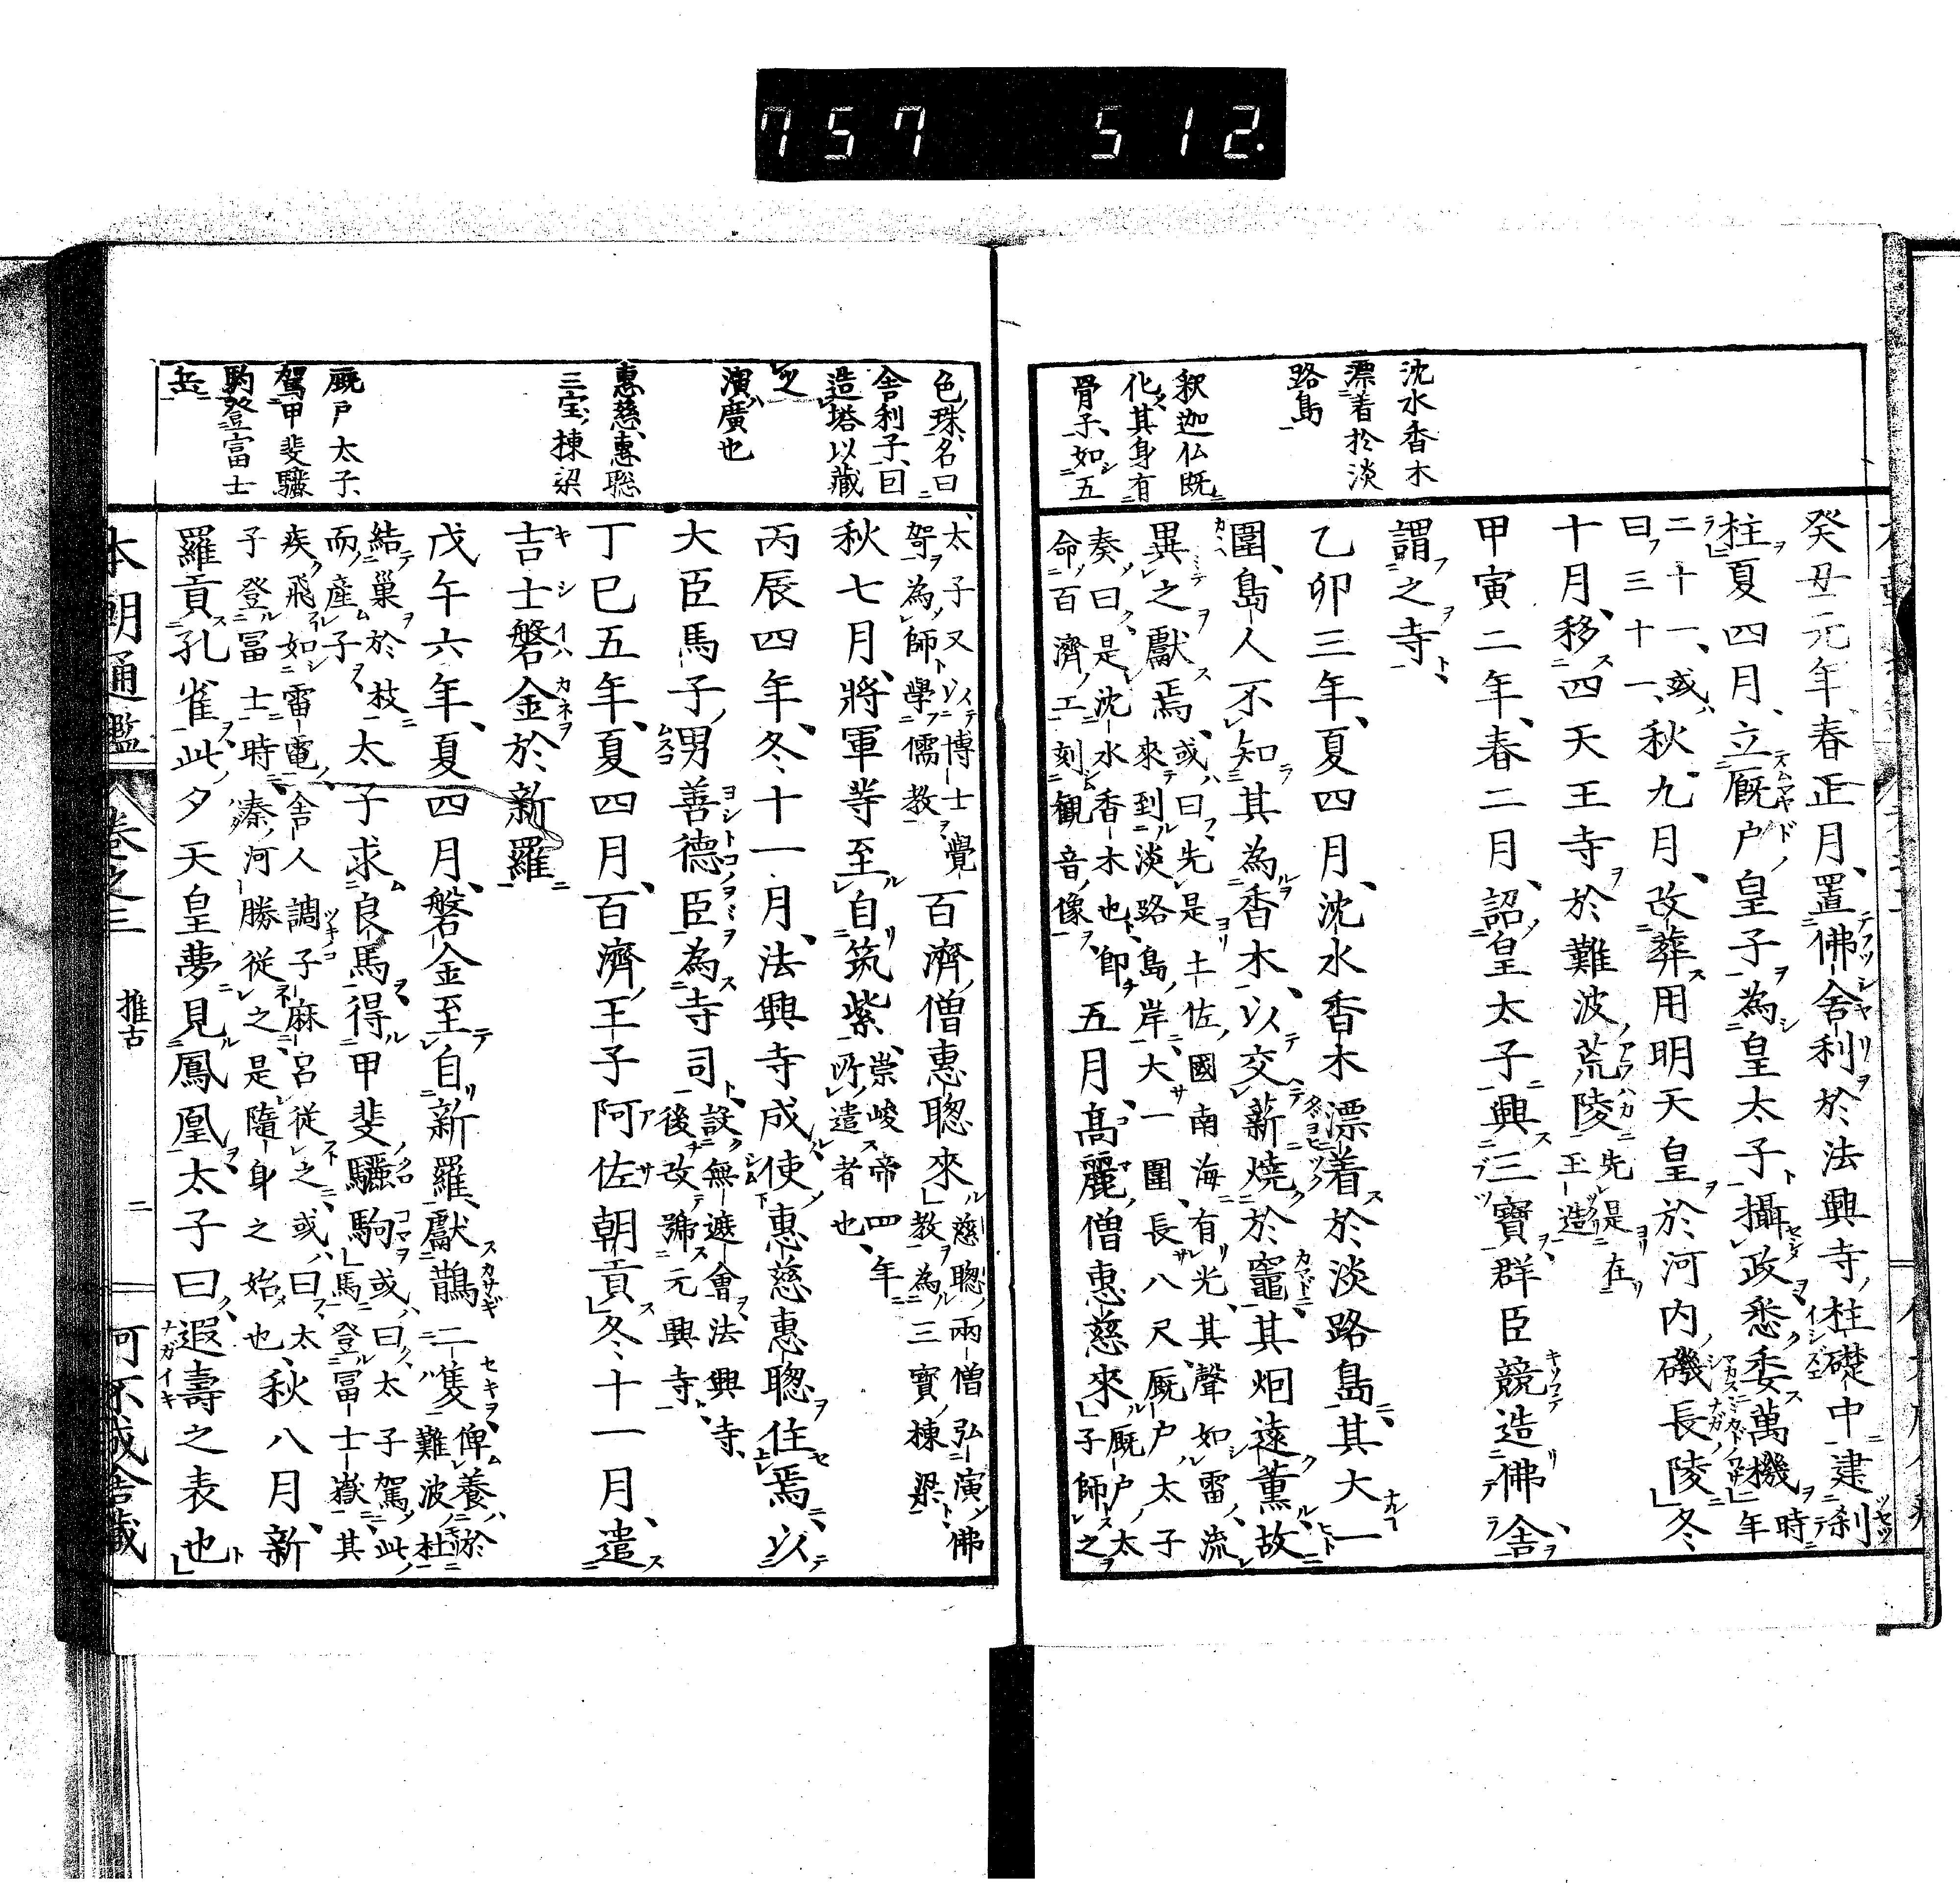 757 512.
沈水香木
漂着於淡
路島
釈迦仏既
化其身有
骨子如五
癸丑元年春正月置佛舎利於法興寺柱礎中建刹
柱夏四月立厩戸皇子為皇太子攝政悉委萬機時年
二十一或
曰三十一秋九月改葬用明天皇於河内磯長陵冬
十月移四天王寺於難波荒陵先是在玉造
甲寅二年春二月詔皇太子興三寶群臣競造佛舎
謂之寺
乙卯三年夏四月沈水香木漂着於淡路島其大一
圍島人不知其為香木以交薪燒於竈其烟遠薫故
異之獻焉或曰先是土佐國南海有光其聲如雷流
來到淡路島岸大一圍長八尺厩戸太子
奏曰是沈水香木也即
命百濟工刻観音像五月高麗僧惠慈來厩戸太
子師之
色珠名曰
舎利子回
造塔以藏
之
演廣也
惠慈惠聡
三宝棟梁
厩戸太子
駕甲斐驪
駒登富士
岳
太子又以博士覺
哿為師學儒教百濟僧惠聰來慈聰兩僧弘演佛
教為三寶棟梁
秋七月將軍等至自筑紫崇峻帝四年
所遣者也
丙辰四年冬十一月法興寺成使惠慈惠聰住焉以
大臣馬子男善德臣為寺司設無遮會法興寺
後改號元興寺
丁巳五年夏四月百濟王子阿佐朝貢冬十一月遣
吉士磐金於新羅
戊午六年夏四月磐金至自新羅獻鵲二隻俾養於
難波杜
結巢於枝
而産子太子求良馬得甲斐驪駒或曰太子駕此
馬登富士嶽其
疾飛如雷電舎人調子麻呂従之或曰太
子登冨士時秦河勝従之是隨身之始也秋八月新
羅貢孔雀此夕天皇夢見鳳凰太子曰遐壽之表也
本朝通鑑 卷之三 推古 二